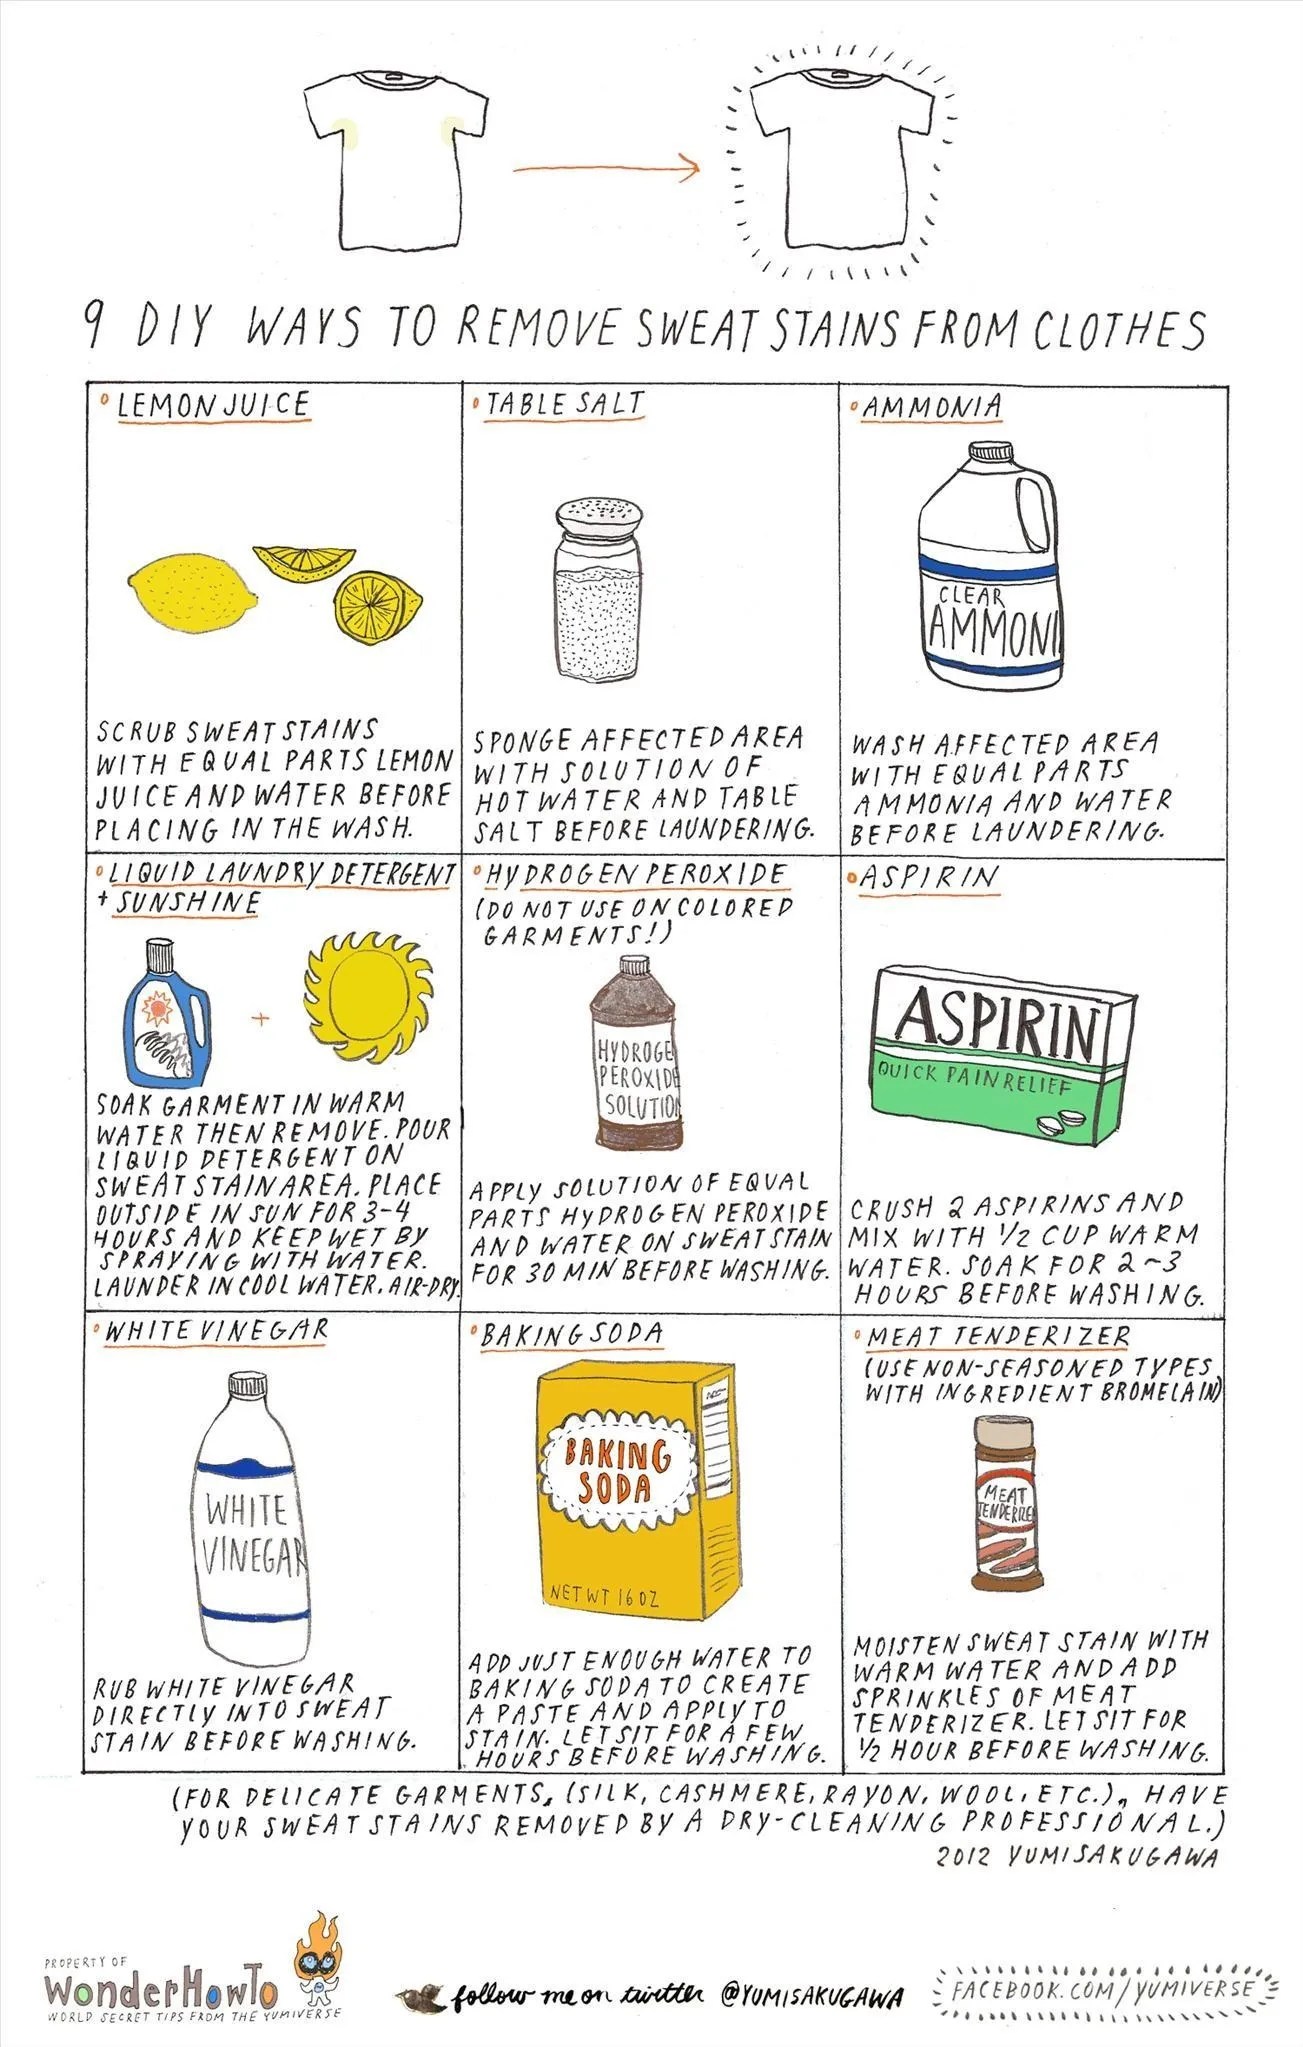 9 DIY WAYS TO REMOVE SWEAT STAINS FROM CLOTHES
LEMON JUICE
SCRUB SWEAT STAINS
WITH EQUAL PARTS LEMON
JUICE AND WATER BEFORE
PLACING IN THE WASH.
TABLE SALT
SPONGE AFFECTED AREA
WITH SOLUTION OF
HOT WATER AND TABLE
SALT BEFORE LAUNDERING.
AMMONIA
CLEAR
AMMONI
WASH AFFECTED AREA
WITH EQUAL PARTS
AMMONIA AND WATER
BEFORE LAUNDERING.
LIQUID LAUNDRY DETERGENT
+ SUNSHINE
+
SOAK GARMENT IN WARM
WATER THEN REMOVE. POUR
LIQUID DETERGENT ON
SWEAT STAIN AREA. PLACE
OUTSIDE IN SUN FOR 3-4
HOURS AND KEEP WET BY
SPRAYING WITH WATER.
LAUNDER IN COOL WATER. AIR-DRY.
HYDROGEN PEROXIDE
(DO NOT USE ON COLORED
GARMENTS!)
HYDROGE
PEROXIDE
SOLUTION
APPLY SOLUTION OF EQUAL
PARTS HYDROGEN PEROXIDE
AND WATER ON SWEAT STAIN
FOR 30 MIN BEFORE WASHING.
ASPIRIN
ASPIRIN
QUICK PAIN RELIEF
CRUSH 2 ASPIRINS AND
MIX WITH 1/2 CUP WARM
WATER. SOAK FOR 2~3
HOURS BEFORE WASHING.
WHITE VINEGAR
WHITE
VINEGAR
RUB WHITE VINEGAR
DIRECTLY INTO SWEAT
STAIN BEFORE WASHING.
BAKING SODA
BAKING
SODA
NET WT 16 OZ
ADD JUST ENOUGH WATER TO
BAKING SODA TO CREATE
A PASTE AND APPLY TO
STAIN. LET SIT FOR A FEW
HOURS BEFORE WASHING.
MEAT TENDERIZER
(USE NON-SEASONED TYPES
WITH INGREDIENT BROMELAIN)
MEAT
TENDERIZE
MOISTEN SWEAT STAIN WITH
WARM WATER AND ADD
SPRINKLES OF MEAT
TENDERIZER. LET SIT FOR
1/2 HOUR BEFORE WASHING.
(FOR DELICATE GARMENTS, (SILK, CASHMERE, RAYON, WOOL, ETC.), HAVE
YOUR SWEAT STAINS REMOVED BY A DRY-CLEANING PROFESSIONAL.)
2012 YUMI SAKUGAWA
PROPERTY OF
WonderHowTo
WORLD SECRET TIPS FROM THE YUMIVERSE
follow me on twitter @YUMISAKUGAWA
FACEBOOK.COM/YUMIVERSE